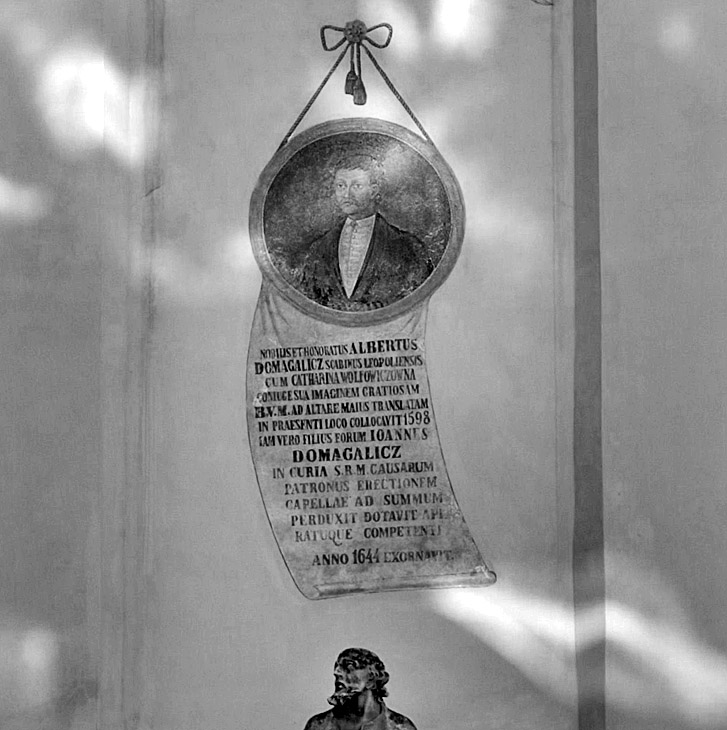 NOBILIS ET HONORATUS ALBERTUS
DOMAGALICZ SCABINUS LEOPOLIENSIS
CUM CATHARINA WOLFOWICZOWNA
CONIUGE SUA IMAGINEM GRATIOSAM
B.V.M. AD ALTARE MAIUS TRANSLATAM
IN PRAESENTI LOCO COLLOCAVIT 1598
IAM VERO FILIUS EORUM IOANNES
DOMAGALICZ
IN CURIA S.R.M. CAUSARUM
PATRONUS ERECTIONEM
CAPELLAE AD SUMMUM
PERDUXIT DOTAVIT
RATUQUE COMPETENTI
ANNO 1644 EXORNAVIT.